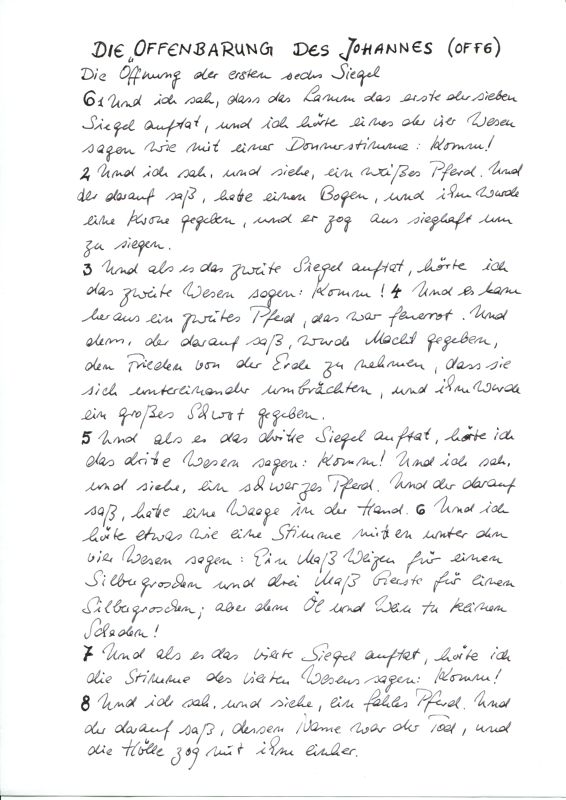 DIE OFFENBARUNG DES JOHANNES (OFF6)
Die Öffnung der ersten sechs Siegel
6 1 Und ich sah, dass das Lamm das erste der sieben
Siegel auftat, und ich hörte eines der vier Wesen
sagen wie mit einer Donnerstimme: Komm!
2 Und ich sah, und siehe, ein weißes Pferd. Und
der darauf saß, hatte einen Bogen, und ihm wurde
eine Krone gegeben, und er zog aus sieghaft um
zu siegen.
3 Und als es das zweite Siegel auftat, hörte ich
das zweite Wesen sagen: Komm! 4 Und es kam
heraus ein zweites Pferd, das war feuerrot. Und
dem, der darauf saß, wurde Macht gegeben,
den Frieden von der Erde zu nehmen, dass sie
sich untereinander umbrächten, und ihm wurde
ein großes Schwert gegeben.
5 Und als es das dritte Siegel auftat, hörte ich
das dritte Wesen sagen: Komm! Und ich sah,
und siehe, ein schwarzes Pferd. Und der darauf
saß, hatte eine Waage in der Hand. 6 Und ich
hörte etwas wie eine Stimme mitten unter den
vier Wesen sagen: Ein Maß Weizen für einen
Silbergroschen und drei Maß Gerste für einen
Silbergroschen; aber dem Öl und Wein tu keinen
Schaden!
7 Und als es das vierte Siegel auftat, hörte ich
die Stimme des vierten Wesens sagen: Komm!
8 Und ich sah, und siehe, ein fahles Pferd. Und
der darauf saß, dessen Name war der Tod, und
die Hölle zog mit ihm einher.